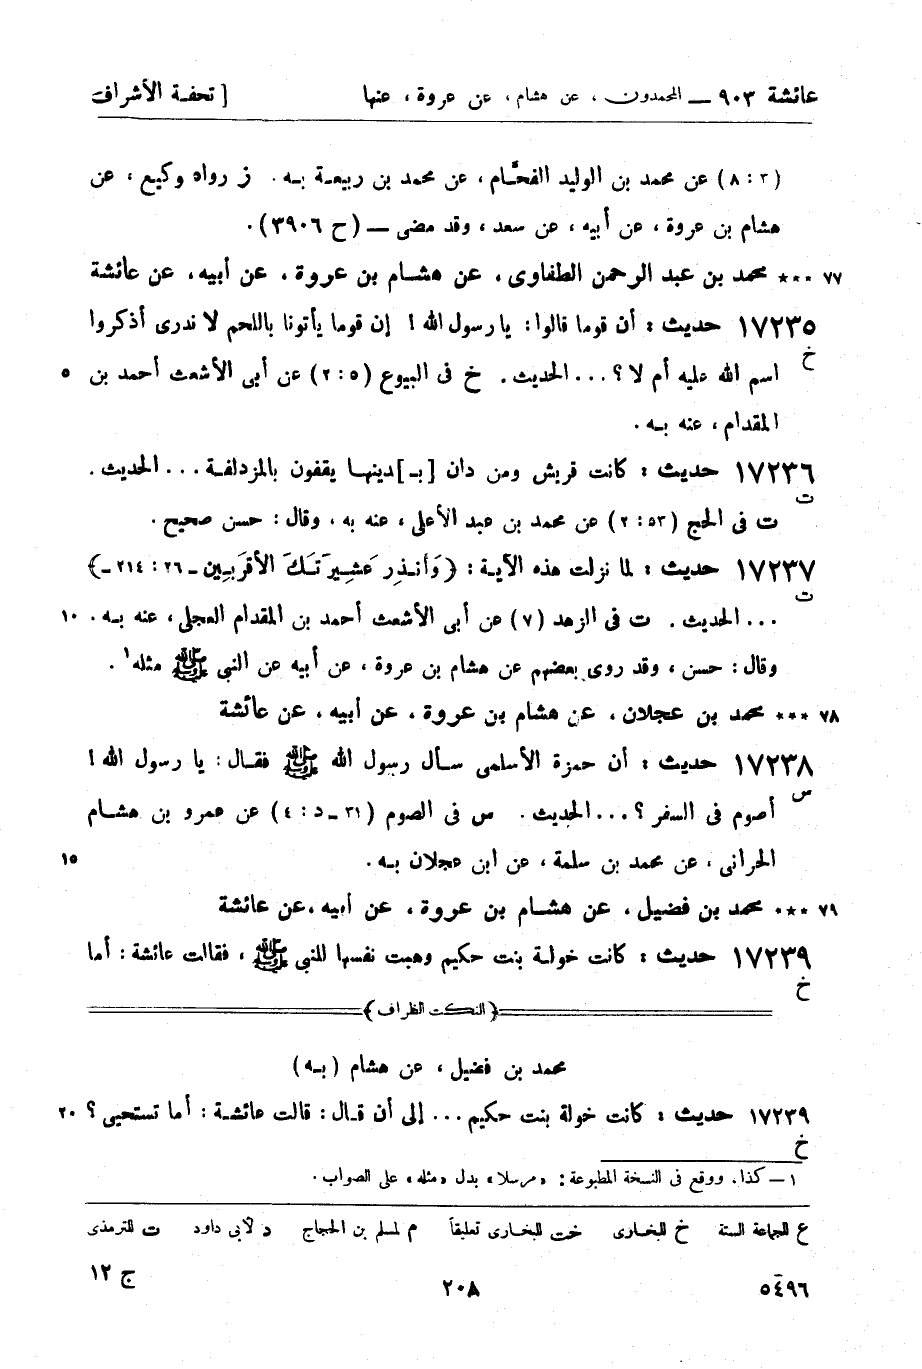 عائشة ٩٠٣ — المحمدون، عن هشام، عن عروة، عنها [ تحفة الأشراف
(٨ : ٣) عن محمد بن الوليد الفحّام، عن محمد بن ربيعة به. ز رواه وكيع، عن
هشام بن عروة، عن أبيه، عن سعد، وقد مضى — (ح ٣٩٠٦).
٧٧ *** محمد بن عبد الرحمن الطفاوى، عن هشام بن عروة، عن أبيه، عن عائشة
١٧٢٣٥ حديث : أن قوما قالوا: يا رسول الله ! إن قوما يأتونا باللحم لا ندرى أذكروا
خ
اسم الله عليه أم لا ؟ ... الحديث. خ فى البيوع (٥ : ٢) عن أبى الأشعث أحمد بن ٥
المقدام، عنه به.
١٧٢٣٦ حديث : كانت قريش ومن دان [بـ]دينها يقفون بالمزدلفة ... الحديث.
ت
ت فى الحج (٥٣ : ٢) عن محمد بن عبد الأعلى، عنه به، وقال: حسن صحيح.
١٧٢٣٧ حديث : لما نزلت هذه الآية : ﴿وَأَنذِر عَشِيرَتَكَ الأَقرَبِين ـ ٢٦ : ٢١٤ ـ﴾
ت
... الحديث. ت فى الزهد (٧) عن أبى الأشعث أحمد بن المقدام العجلى، عنه به. ١٠
وقال: حسن، وقد روى بعضهم عن هشام بن عروة، عن أبيه عن النبى ﷺ مثله١.
٧٨ *** محمد بن عجلان، عن هشام بن عروة، عن أبيه، عن عائشة
١٧٢٣٨ حديث : أن حمزة الأسلمى سأل رسول الله ﷺ فقال: يا رسول الله !
س
أصوم فى السفر ؟ ... الحديث. س فى الصوم (٣١ ـ د : ٤) عن عمرو بن هشام
الحرانى، عن محمد بن سلمة، عن ابن عجلان به. ١٥
٧٩ *** محمد بن فضيل، عن هشام بن عروة، عن أبيه، عن عائشة
١٧٢٣٩ حديث : كانت خولة بنت حكيم وهبت نفسها للنبى ﷺ، فقالت عائشة : أما
خ
﴿النكت الظراف﴾
محمد بن فضيل، عن هشام (به)
١٧٢٣٩ حديث : كانت خولة بنت حكيم ... إلى أن قال: قالت عائشة : أما تستحيى ؟ ٢٠
خ
١ — كذا. ووقع فى النسخة المطبوعة : «مرسلا» بدل «مثله» على الصواب.
ع للجماعة الستة خ للبخارى خت للبخارى تعليقاً م لمسلم بن الحجاج د لأبى داود ت للترمذى
٥٤٩٦ ٢٠٨ ج ١٢